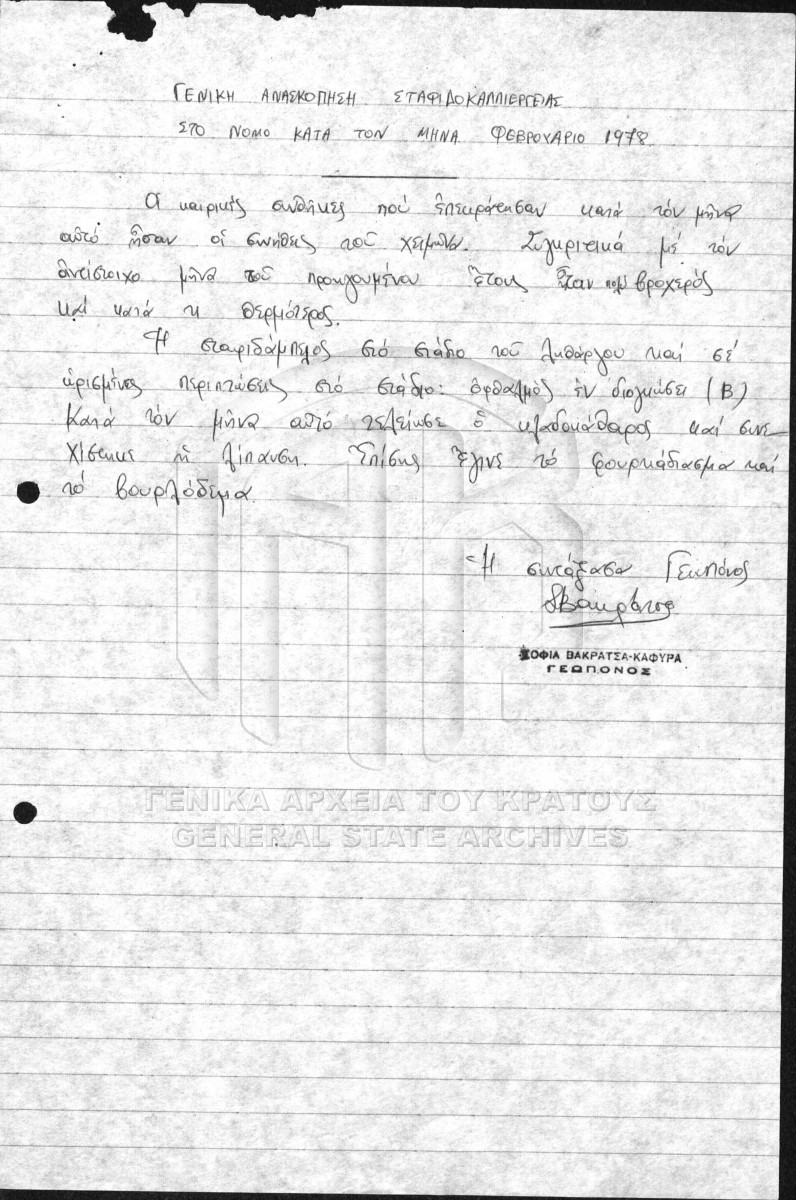 ΓΕΝΙΚΗ ΑΝΑΣΚΟΠΗΣΗ ΣΤΑΦΙΔΟΚΑΛΛΙΕΡΓΕΙΑΣ
ΣΤΟ ΝΟΜΟ ΚΑΤΑ ΤΟΝ ΜΗΝΑ ΦΕΒΡΟΥΑΡΙΟ 1978
Οἱ καιρικές συνθῆκες πού ἐπεκράτησαν κατά τόν μῆνα
αὐτό ἦσαν οἱ συνήθεις τοῦ χειμῶνα. Συγκριτικά μέ τόν
ἀντίστοιχο μῆνα τοῦ προηγουμένου ἔτους ἦταν πολύ βροχερός
καί κατά τι θερμότερος.
Ἡ σταφιδάμπελος στό στάδιο τοῦ ληθάργου καί σέ
ὡρισμένες περιπτώσεις στό στάδιο: ὀφθαλμός ἐν διογκώσει (Β)
Κατά τόν μῆνα αὐτό τελείωσε ὁ κλαδοκάθαρος καί συνε-
χίστηκε ἡ λίπανση. Ἐπίσης ἔγινε τό φουρκάδιασμα καί
τό βουρλόδεμα.
Ἡ συντάξασα Γεωπόνος
ΣΟΦΙΑ ΒΑΚΡΑΤΣΑ-ΚΑΦΥΡΑ
ΓΕΩΠΟΝΟΣ
ΓΕΝΙΚΑ ΑΡΧΕΙΑ ΤΟΥ ΚΡΑΤΟΥΣ
GENERAL STATE ARCHIVES